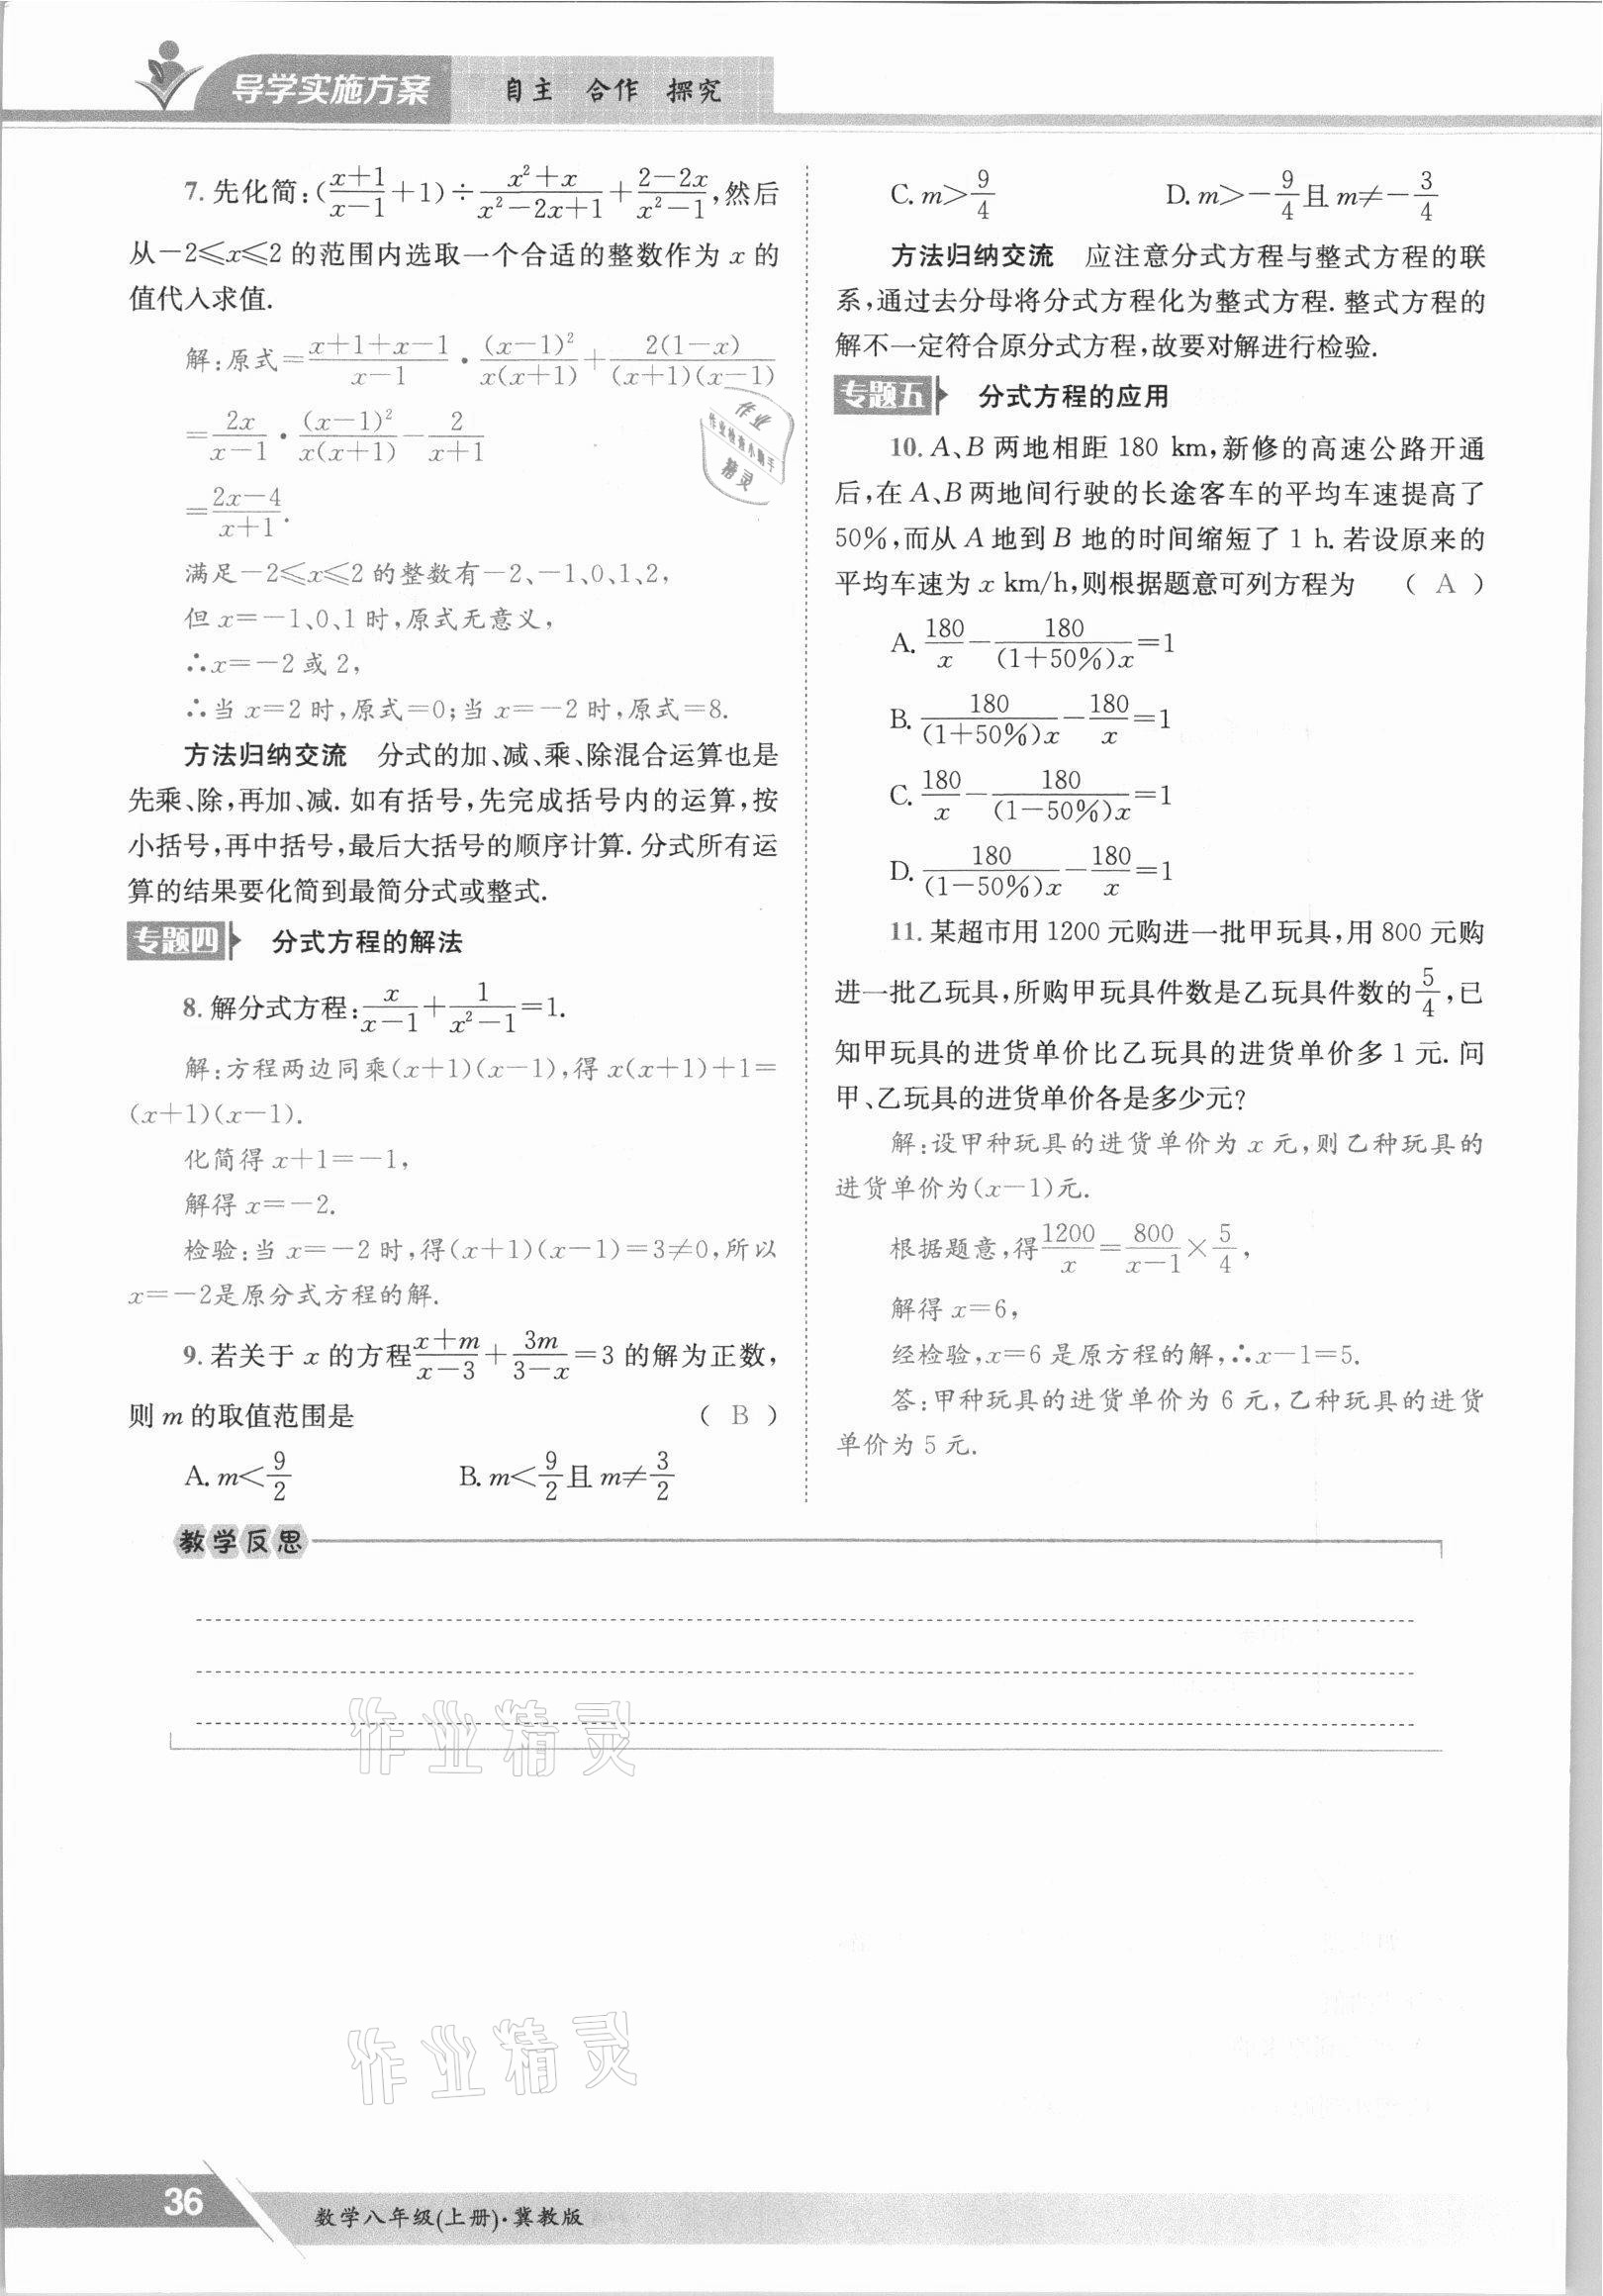 导学实施方案 自主 合作 探究
7. 先化简:((x+1)/(x−1)+1)÷(x²+x)/(x²−2x+1)+(2−2x)/(x²−1),然后
从−2≤x≤2 的范围内选取一个合适的整数作为 x 的
值代入求值.
解:原式=(x+1+x−1)/(x−1)·(x−1)²/(x(x+1))+2(1−x)/((x+1)(x−1))
=2x/(x−1)·(x−1)²/(x(x+1))−2/(x+1)
=(2x−4)/(x+1).
满足−2≤x≤2 的整数有−2、−1、0、1、2,
但 x=−1、0、1 时,原式无意义,
∴x=−2 或 2,
∴当 x=2 时,原式=0;当 x=−2 时,原式=8.
方法归纳交流 分式的加、减、乘、除混合运算也是
先乘、除,再加、减. 如有括号,先完成括号内的运算,按
小括号,再中括号,最后大括号的顺序计算. 分式所有运
算的结果要化简到最简分式或整式.
专题四 分式方程的解法
8. 解分式方程:x/(x−1)+1/(x²−1)=1.
解:方程两边同乘(x+1)(x−1),得 x(x+1)+1=
(x+1)(x−1).
化简得 x+1=−1,
解得 x=−2.
检验:当 x=−2 时,得(x+1)(x−1)=3≠0,所以
x=−2是原分式方程的解.
9. 若关于 x 的方程(x+m)/(x−3)+3m/(3−x)=3 的解为正数,
则 m 的取值范围是 ( B )
A. m<9/2 B. m<9/2且 m≠3/2
C. m>9/4 D. m>−9/4且 m≠−3/4
方法归纳交流 应注意分式方程与整式方程的联
系,通过去分母将分式方程化为整式方程. 整式方程的
解不一定符合原分式方程,故要对解进行检验.
专题五 分式方程的应用
10. A、B 两地相距 180 km,新修的高速公路开通
后,在 A、B两地间行驶的长途客车的平均车速提高了
50%,而从 A 地到 B 地的时间缩短了 1 h. 若设原来的
平均车速为 x km/h,则根据题意可列方程为 ( A )
A. 180/x−180/((1+50%)x)=1
B. 180/((1+50%)x)−180/x=1
C. 180/x−180/((1−50%)x)=1
D. 180/((1−50%)x)−180/x=1
11. 某超市用 1200 元购进一批甲玩具,用 800 元购
进一批乙玩具,所购甲玩具件数是乙玩具件数的5/4,已
知甲玩具的进货单价比乙玩具的进货单价多 1 元. 问
甲、乙玩具的进货单价各是多少元?
解:设甲种玩具的进货单价为 x 元,则乙种玩具的
进货单价为(x−1)元.
根据题意,得1200/x=800/(x−1)×5/4,
解得 x=6,
经检验,x=6 是原方程的解,∴x−1=5.
答:甲种玩具的进货单价为 6 元,乙种玩具的进货
单价为 5 元.
作业
作业检查小助手
精灵
教学反思
作业精灵
作业精灵
36 数学八年级(上册)·冀教版